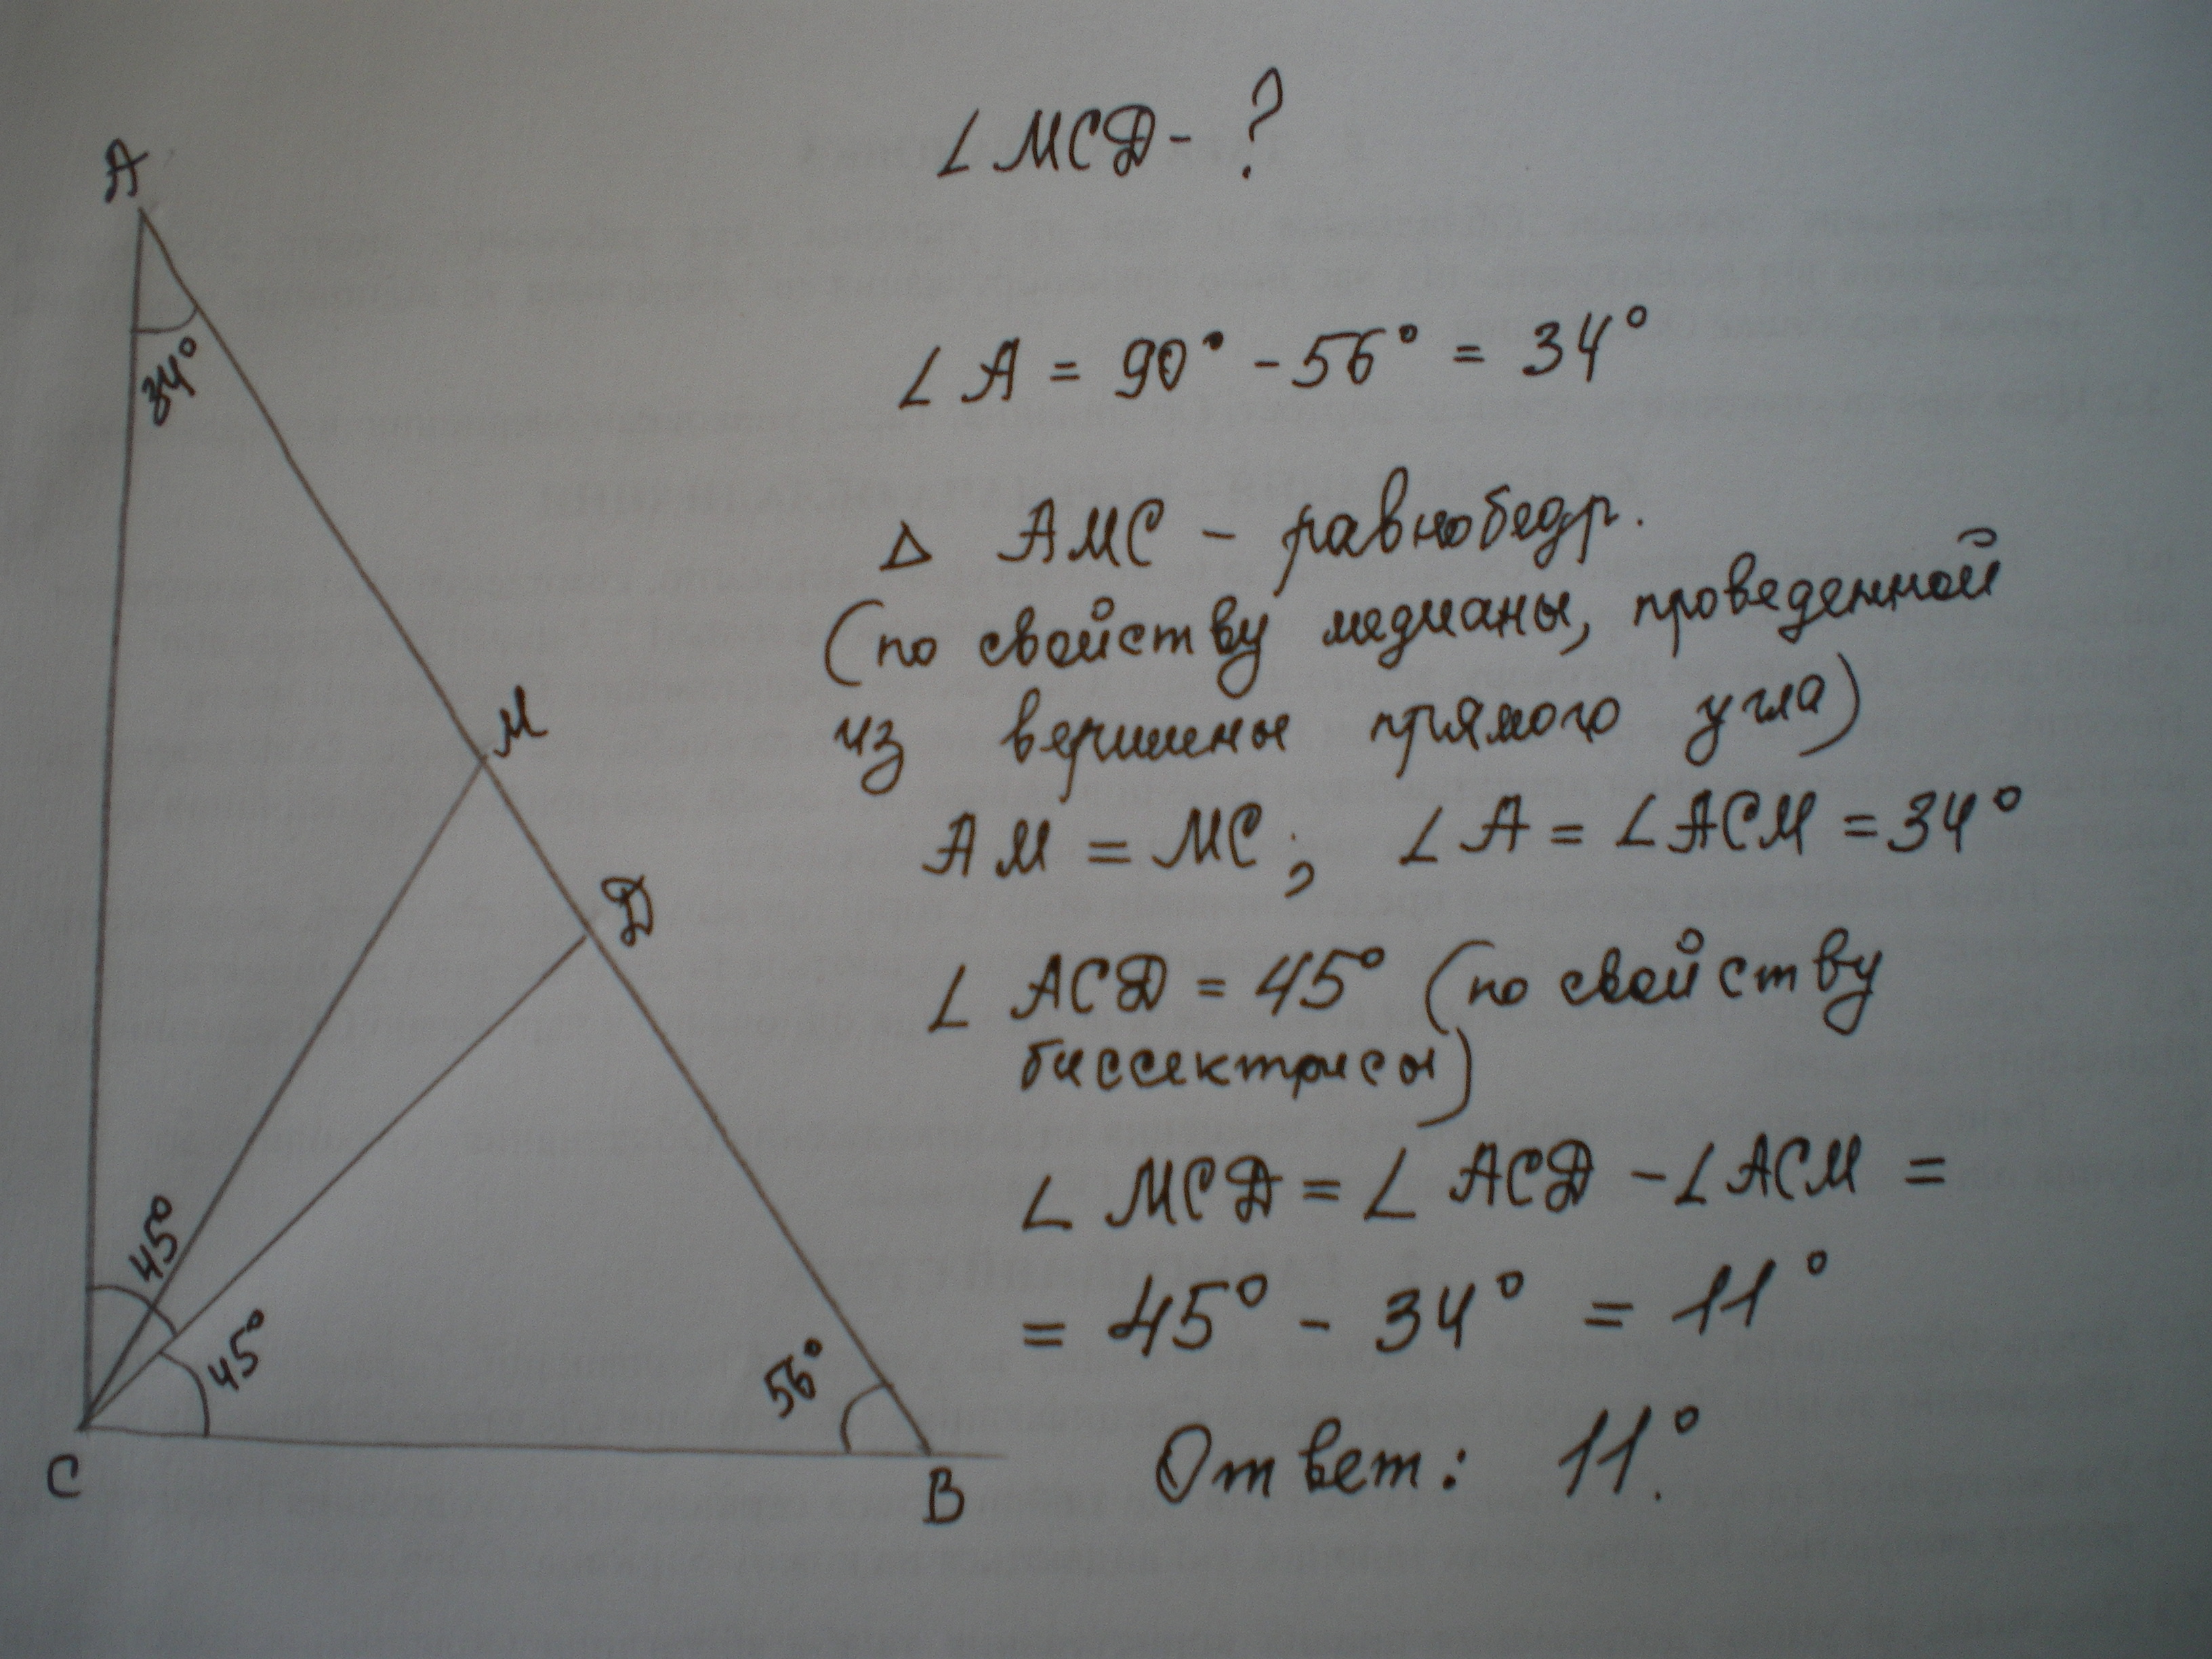 ∠MCD - ?
A
34°
∠A = 90° - 56° = 34°
△ AMC - равнобедр.
(по свойству медианы, проведенной
из вершины прямого угла)
M
AM = MC; ∠A = ∠ACM = 34°
D
∠ ACD = 45° (по свойству
биссектрисы)
∠ MCD = ∠ ACD - ∠ACM =
= 45° - 34° = 11°
45°
45°
56°
C
B
Ответ: 11°.